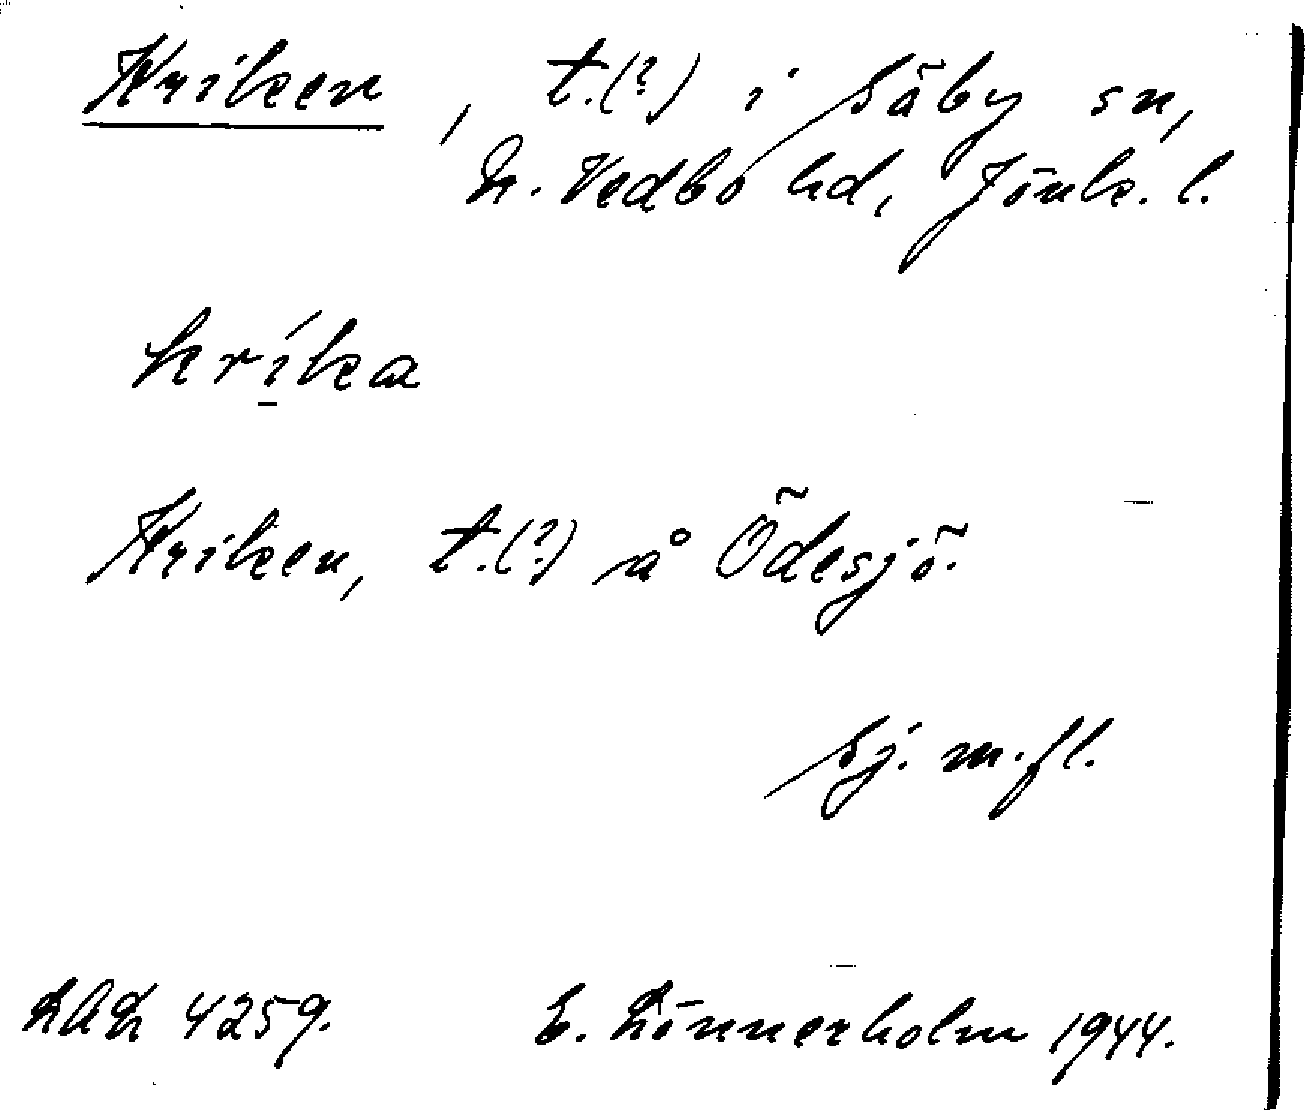 Kriken, t.(?) i Säby sn,
N. Vedbo hd, Jönk. l.
kríka
Kriken, t.(?) å Ödesjö.
Sj. m.fl.
LAL 4259. E. Lönnerholm 1944.